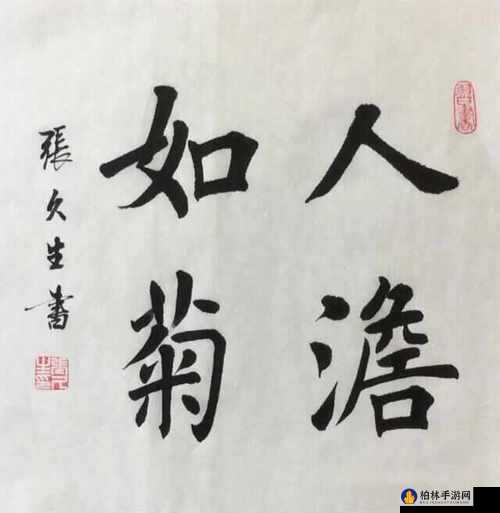 人澹
如菊
張久生書
柏林手游网